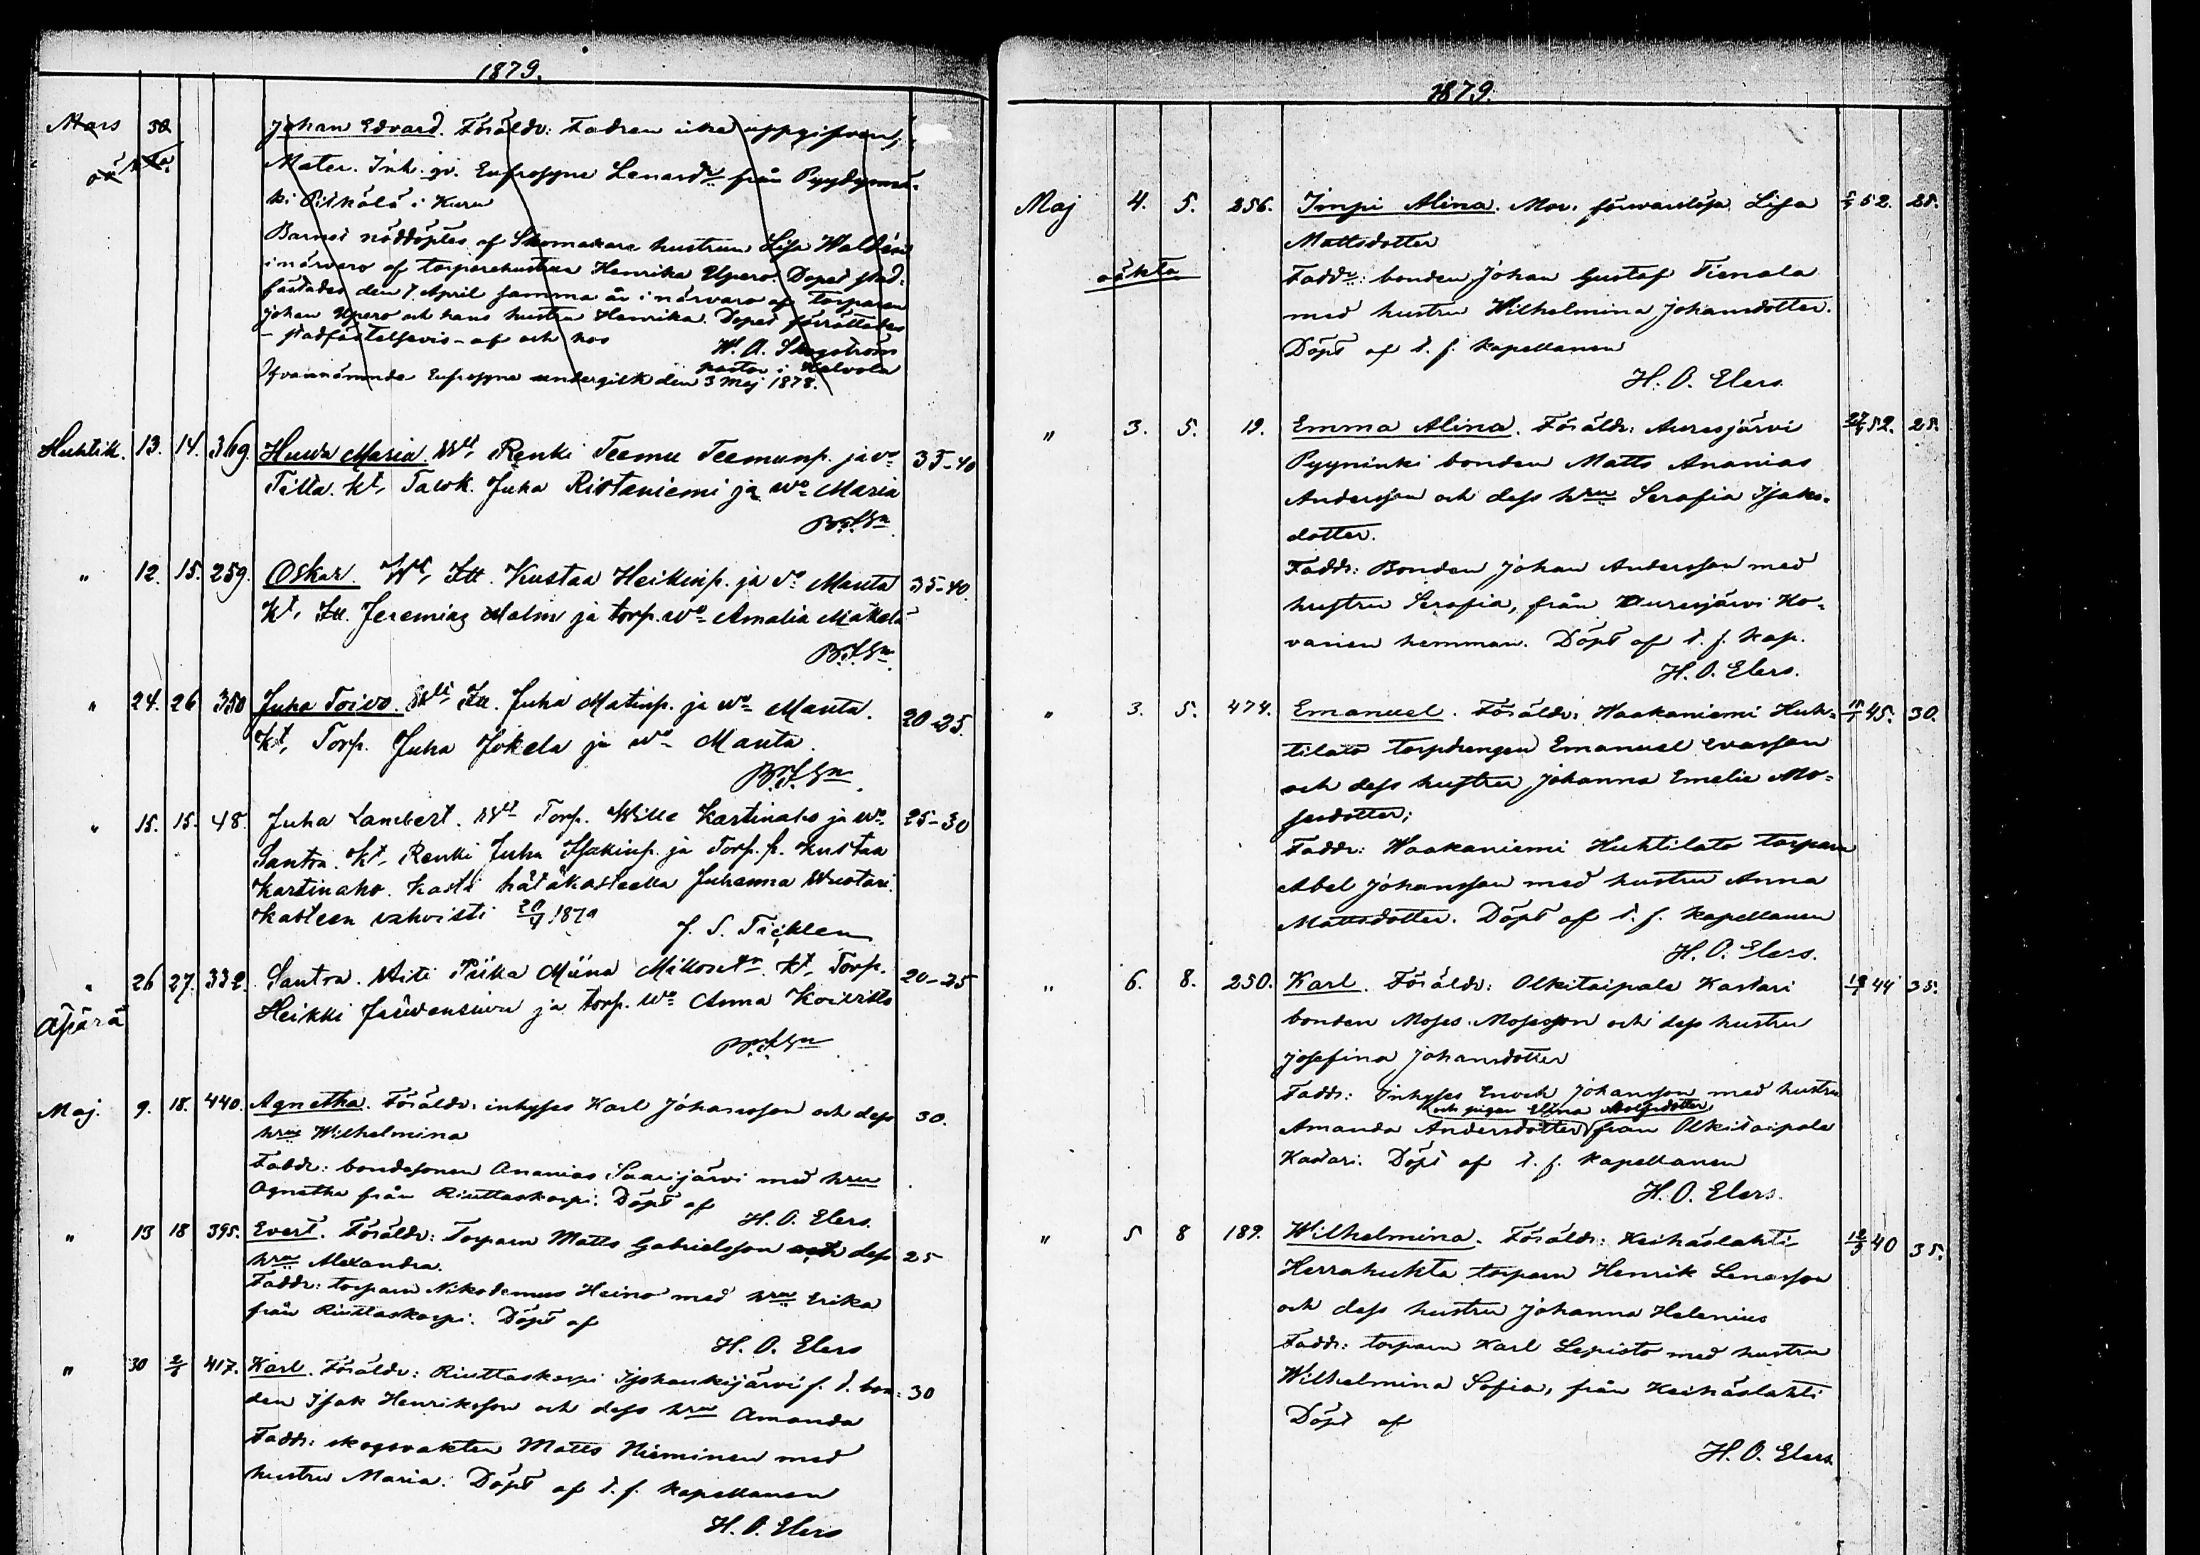 1879.
Mars 30 Johan Edvard. Föräldr: Fadren icke uppgifven;
oä
Mater. Inh. Eufrosyne Lenardsdr från
i Kuru
Barnet nöddöptes af Skomakare hustrun Lisa Waldén
i närvaro af torparehustrun Henrika Upero. Dopet stad-
fästades den 7 April samma år i närvaro af Torparen
Johan Upero och hans hustru Henrika. Dopet förrättades
- stadfästelsevis - af och hos W. A.
pastor i Kalvola
Ofvannämnde Eufrosyne undergick den 3 Maj 1878.
Huhtik. 13. 14. 369. Maria. Renki Teemu Teemunp. ja vo 35-40
Tilta. Kt, Talok. Juha Ristaniemi ja wo Maria
" 12. 15. 259. Oskar. Wt, Itt. Kustaa Heikinp. ja vo Manta 35-40.
Kt, Itt. Jeremias Malm ja torp. wo Amalia Mäkelä
" 24. 26 350 Juha Toivo. Itt. Juha Matinp. ja wo Manta. 20-25.
Kt, Torp. Juha Jokela ja wo Manta.
" 15. 15. 48. Juha Lambert. Torp. Wille Kartinaho ja wo 25-30
Santra. Kt, Renki Juha Isakinp. ja Torp. p. Kustaa
Kartinaho. Kasti hätäkasteella Juhanna
Kasteen vahvisti 20/4 1879
" 26 27. 332. Santra. Aiti Piika Miina Kt, Torp. 20-25
Äpärä
Heikki ja torp. wo Anna Koivisto
Maj. 9. 18. 440. Agnetha. Föräldr: inhyses Karl Johansson och dess 30.
hru Wilhelmina
Faddr: bondesonen Ananias Saarijärvi med hru
Agnetha från Riuttaskorpi. Döpt af
H. O. Elers.
" 13 18 395. Evert. Föräldr: Torparn Matts Gabrielsson och dess 25
hru Alexandra.
Faddr: torparn Nikodemus Heino med hru Erika
från Riuttaskorpi. Döpt af
H. O. Elers
" 30 2/6 417. Karl. Föräldr: Riuttaskorpi f. d. bon- 30
den Isak Henriksson och dess hru Amanda
Faddr: skogsvakten Matts Nieminen med
hustru Maria. Döpt af t. f. kapellanen
H. O. Elers
1879.
Maj 4. 5. 256. Impi Alina. Mor. försvarslösa Lisa 52. 25.
Mattsdotter
oäkta
Faddr: bonden Johan Gustaf Tienala
med hustru Wilhelmina Johansdotter.
Döpt af t. f. kapellanen
H. O. Elers.
" 3. 5. 19. Emma Alina. Föräldr: Auresjärvi 52. 25.
Pyyninki bonden Matts Ananias
Andersson och dess hru Serafia Isaks-
dotter.
Faddr: Bonden Johan Andersson med
hustru Serafia, från Auresjärvi Ko-
vanen hemman. Döpt af t. f. kap.
H. O. Elers.
" 3. 5. 474. Emanuel. Föräldr: Waakaniemi Huh- 45. 30.
tilato torpdrengen Emanuel Evasson
och dess hustru Johanna Emelie Mo-
sesdotter;
Faddr: Waakaniemi Huhtilato torparn
Abel Johansson med hustru Anna
Mattsdotter. Döpt af t. f. kapellanen
H. O. Elers.
" 6. 8. 250. Karl. Föräldr: Olkitaipale Kastari 44 35.
bonden Moses Mosesson och dess hustru
Josefina Johansdotter
Faddr: Inhyses Enock Johansson med hustru
och pigan Elina Adolfsdotter
Amanda Andersdotter från Olkitaipale
Kastari. Döpt af t. f. kapellanen
H. O. Elers.
" 5 8 189. Wilhelmina. Föräldr: Keihäslahti 40 35.
Herrahuhta torparn Henrik Lenasson
och dess hustru Johanna Helenius
Faddr: torparn Karl Lepistö med hustru
Wilhelmina Sofia, från Keihäslahti
Döpt af
H. O. Elers.